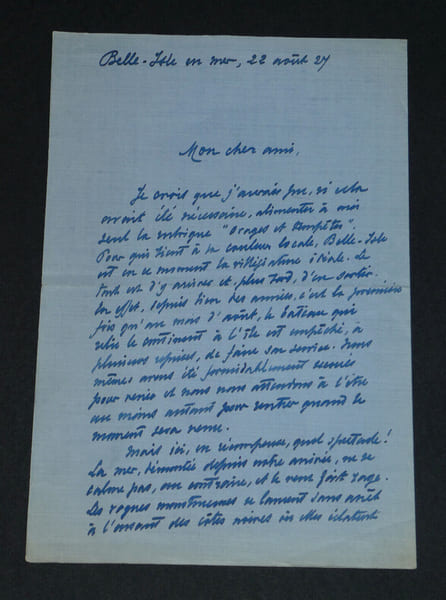 Belle-Isle en mer, 22 août 27
Mon cher ami,
Je crois que j'aurais pu, si cela
avait été nécessaire, alimenter à moi
seul la rubrique "orages et tempêtes".
Pour qui tient à la couleur locale, Belle-Isle
est en ce moment la villégiature idéale. Le
tout est d'y arriver et, plus tard, d'en sortir.
En effet, depuis bien des années, c'est la première
fois qu'au mois d'août, le bateau qui
relie le continent à l'île est empêché, à
plusieurs reprises, de faire son service. Nous
mêmes avons été formidablement secoués
pour venir et nous nous attendons à l'être
au moins autant pour rentrer quand le
moment sera venu.
Mais ici, en récompense, quel spectacle!
La mer, démontée depuis notre arrivée, ne se
calme pas, au contraire, et le vent fait rage.
Des vagues monstrueuses se lancent sans arrêt
à l'assaut des côtes noires où elles éclatent